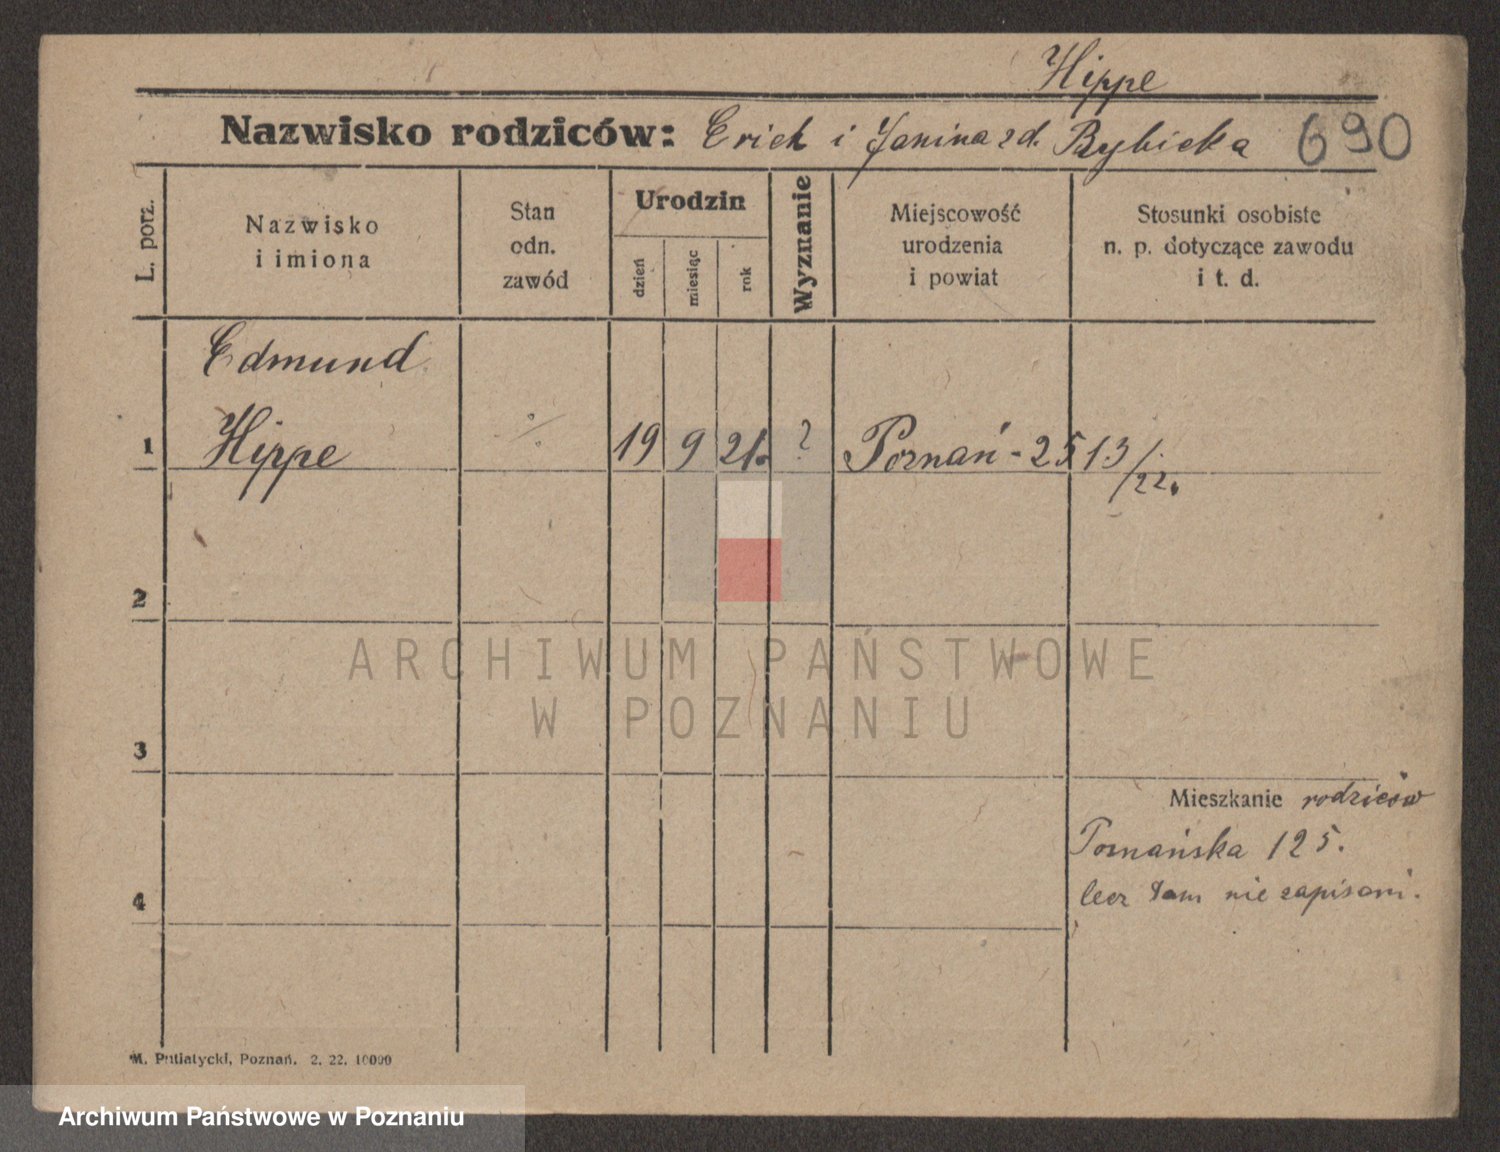 Hippe
Nazwisko rodziców: Erich i Janina zd. Rybicka 690
L. porz.
Nazwisko
i imiona
Stan
odn.
zawód
Urodzin
dzień
miesiąc
rok
Wyznanie
Miejscowość
urodzenia
i powiat
Stosunki osobiste
n. p. dotyczące zawodu
i t. d.
Edmund
1 Hippe 19 9 21. ? Poznań - 2513/22.
2
3
Mieszkanie rodziców
Poznańska 125.
lecz tam nie zapisani.
4
M. Putiatycki, Poznań. 2. 22. 10000
ARCHIWUM PAŃSTWOWE
W POZNANIU
Archiwum Państwowe w Poznaniu